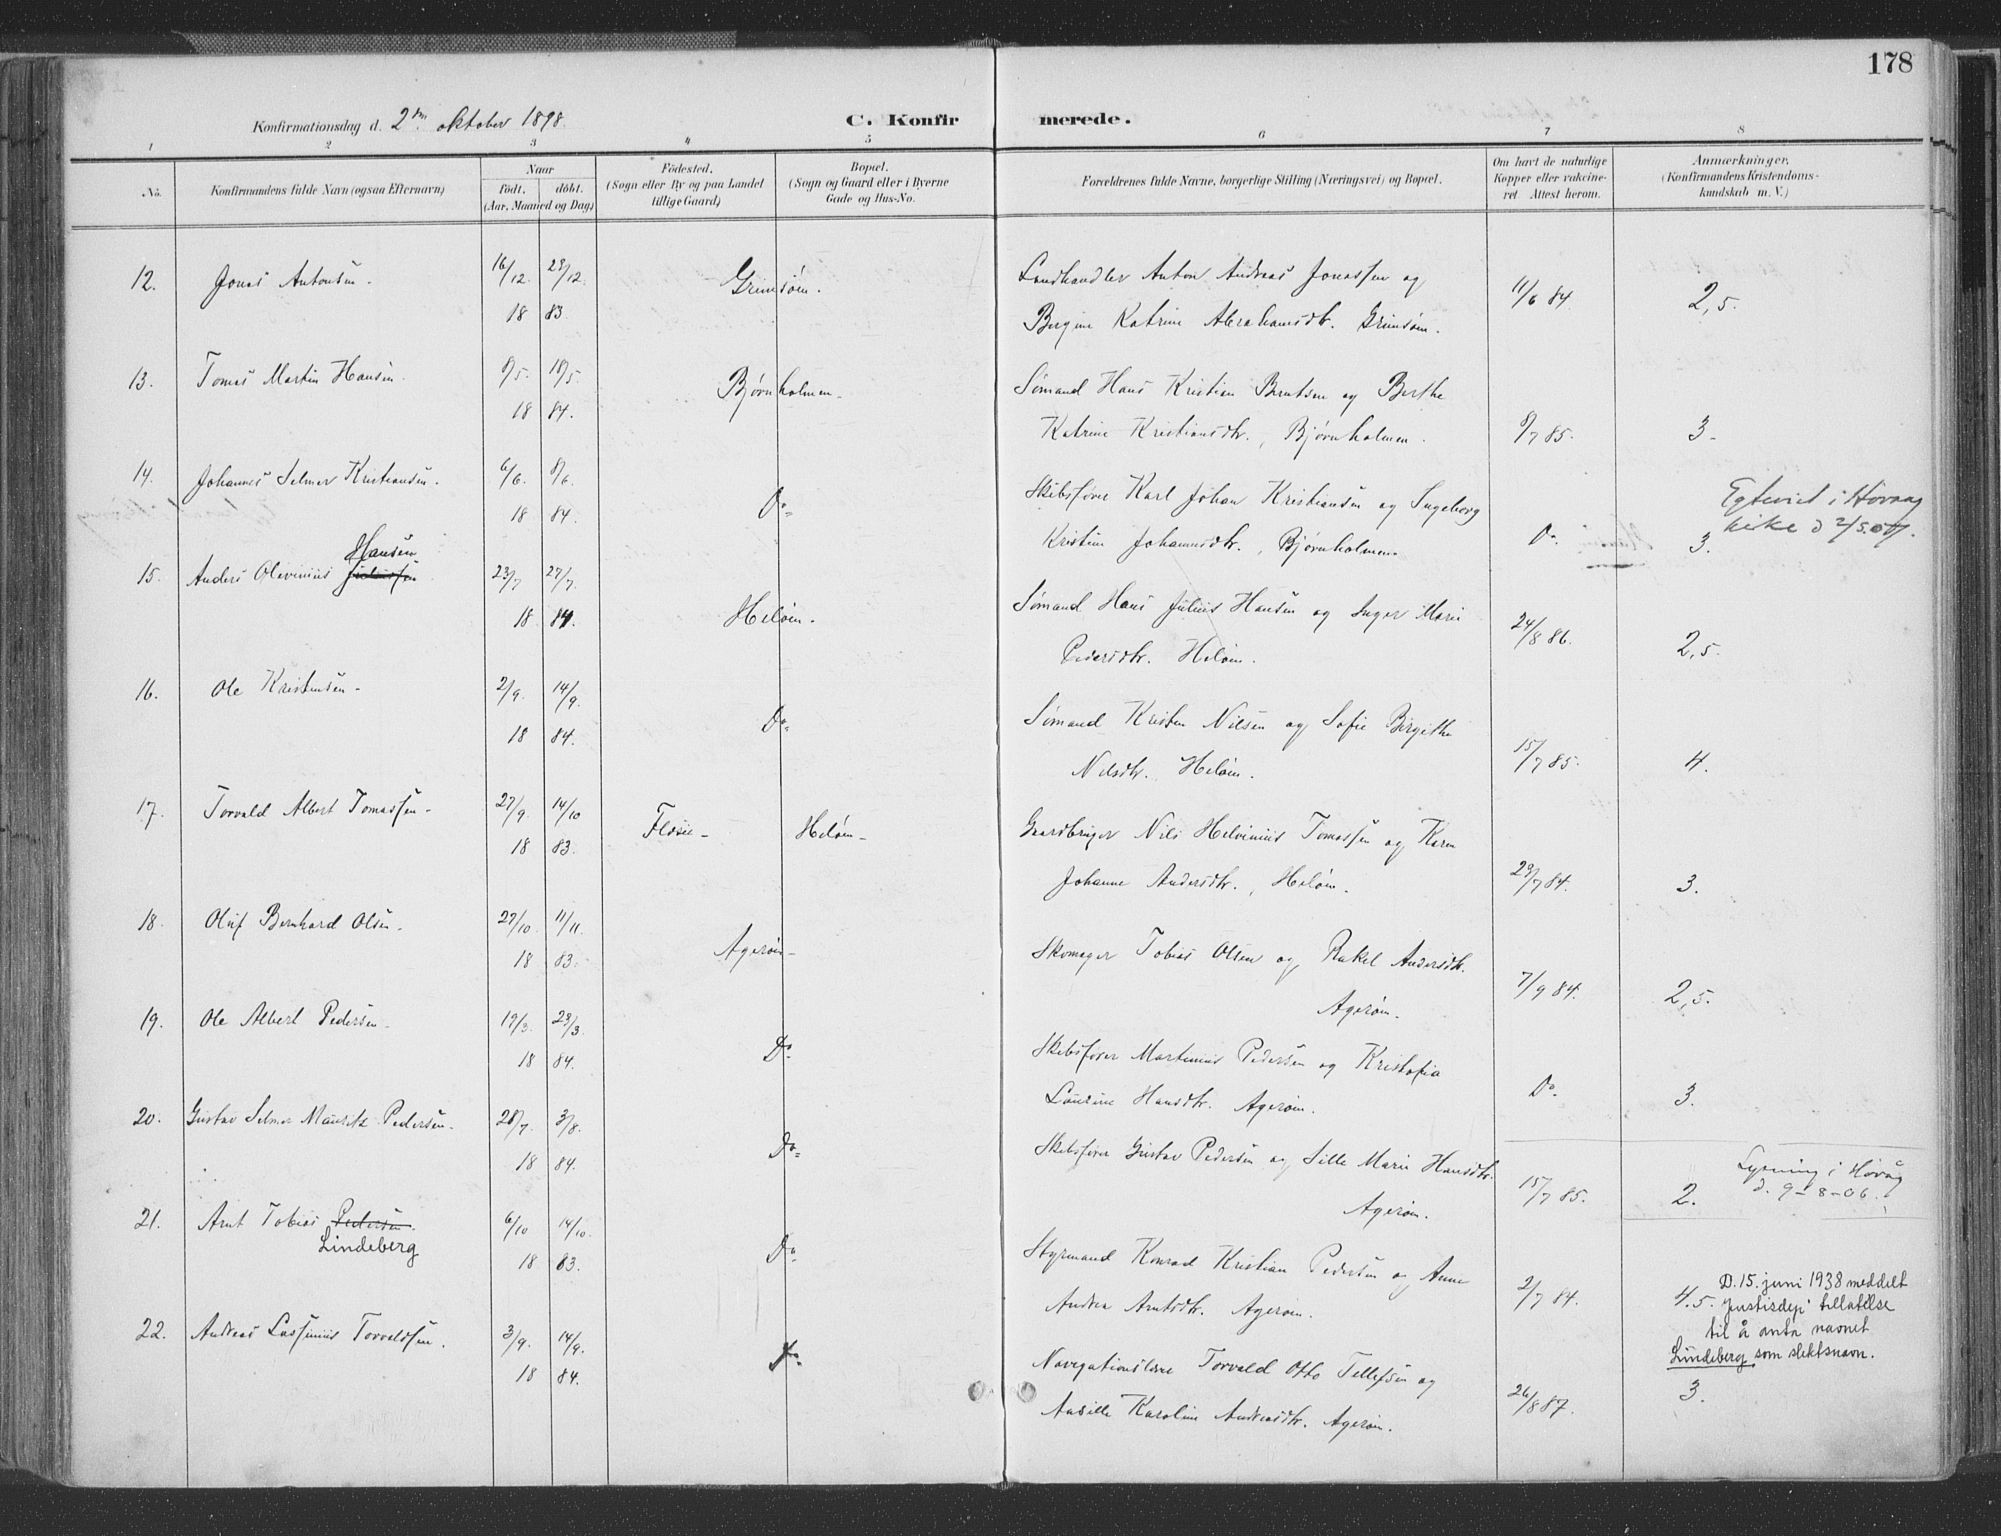 178
Konfirmationsdag d. 2den oktober 1898.
C. Konfirmerede.
1 2 3 4 5 6 7 8
No. Konfirmandens fulde Navn (ogsaa Efternavn)
Naar født, døbt. (Aar, Maaned og Dag)
Födested. (Sogn eller By og paa Landet tillige Gaard)
Bopæl. (Sogn og Gaard eller i Byerne Gade og Hus-No.
Forældrenes fulde Navne, borgerlige Stilling (Næringsvei) og Bopæl.
Om havt de naturlige Kopper eller vakcineret. Attest herom.
Anmærkninger. (Konfirmandens Kristendomskundskab m. V.)
12. Jonas Antonsen. 16/12. 23/12. Grimsøen. Landhandler Anton Andreas Jonassen og 11/6 84. 2,5.
18 83 Bergine Katrine Abrahamsdtr. Grimsøen.
13. Tomas Martin Hansen. 8/5. 18/5. Bjørnholmen. Sømand Hans Kristian Berntsen og Berthe
18 84. Katrine Kristiansdtr., Bjørnholmen. 8/7 85. 3.
14. Johannes Selmer Kristiansen. 6/6. 8/6. Do. Skibsfører Karl Johan Kristiansen og Ingeborg Egteviet i Høvaag
18 84. Kristine Johannesdtr., Bjørnholmen. Do. 3. kirke d 2/5.07.
Hansen
15. Anders Olevinius Juliussen 23/7 27/7. Heløen. Sømand Hans Julius Hansen og Inger Marie 24/8 86. 2,5.
18 84. Pedersdtr. Heløen.
16. Ole Kristensen. 2/9. 14/9. Do. Sømand Kristen Nilsen og Sofie Birgithe
18 84. Nilsdtr. Heløen. 15/7 85. 4.
17. Torvald Albert Tomassen. 27/9. 14/10 Heløen. Gaardbruger Nils Helvinius Tomassen og Karen
18 83. Johanne Andersdtr., Heløen. 23/7 84. 3.
18. Oluf Bernhard Olsen. 27/10. 11/11. Agerøen. Skomager Tobias Olsen og Rakel Andersdtr.
18 83. Agerøen. 7/9 84. 2,5.
19. Ole Albert Pedersen. 19/3. 23/3. Do. Skibsfører Martinius Pedersen og Kristofia
18 84. Laurine Hansdtr. Agerøen. Do. 3.
20. Gustav Selmer Mauritz Pedersen. 28/7. 3/8. Do. Skibsfører Gustav Pedersen og Sille Marie Hansdtr. Lysning i Høvåg
18 84. Agerøen. 15/7 85. 2. d. 9-8-06.
21. Arnt Tobias Pedersen. 6/10 14/10. Do. Styrmand Konrad Kristian Pedersen og Anne
Lindeberg 18 83. Andrea Arntsdtr. Agerøen. 2/7 84. 4.5.
D. 15. juni 1938 meddelt
justisdep. tillatelse
til å anta navnet
Lindeberg som slektsnavn.
22. Andreas Lassinius Torvaldsen. 3/9. 14/9. Do. Navigationslærer Torvald Otto Tellefsen og
18 84. Karoline Andreasdtr. Agerøen. 26/8 87. 3.